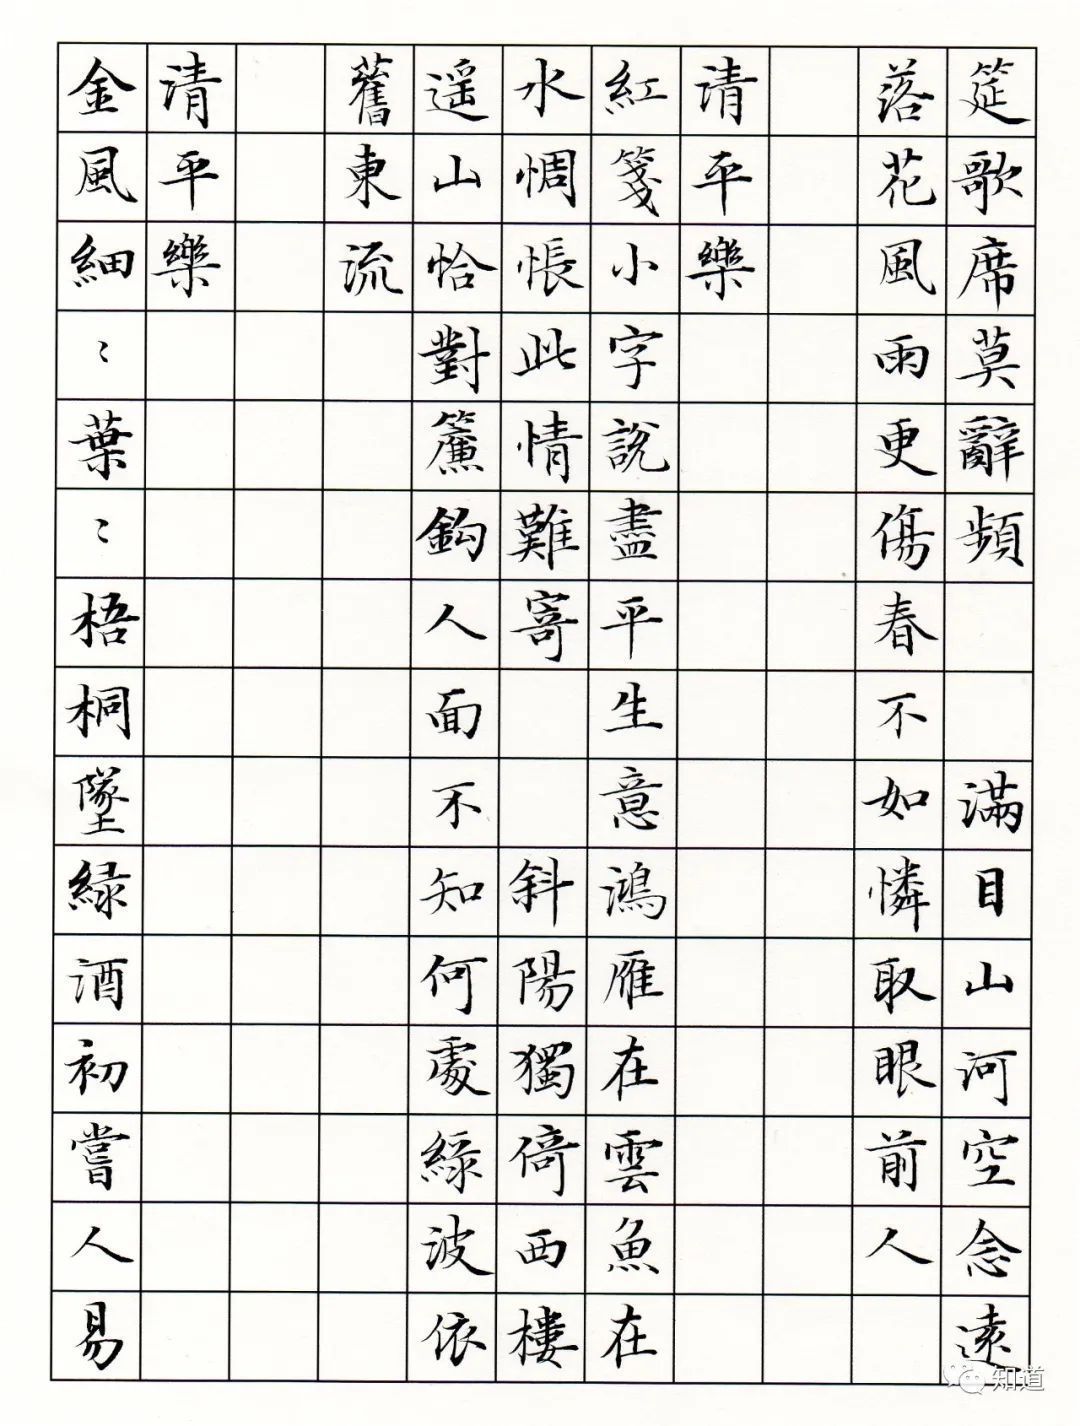 筵歌席莫辭頻 滿目山河空念遠
落花風雨更傷春不如憐取眼前人
清平樂
紅箋小字說盡平生意鴻雁在雲魚在
水惆悵此情難寄 斜陽獨倚西樓
遥山恰對簾鈎人面不知何處綠波依
舊東流
清平樂
金風細〻葉〻梧桐墜綠酒初嘗人易
知道